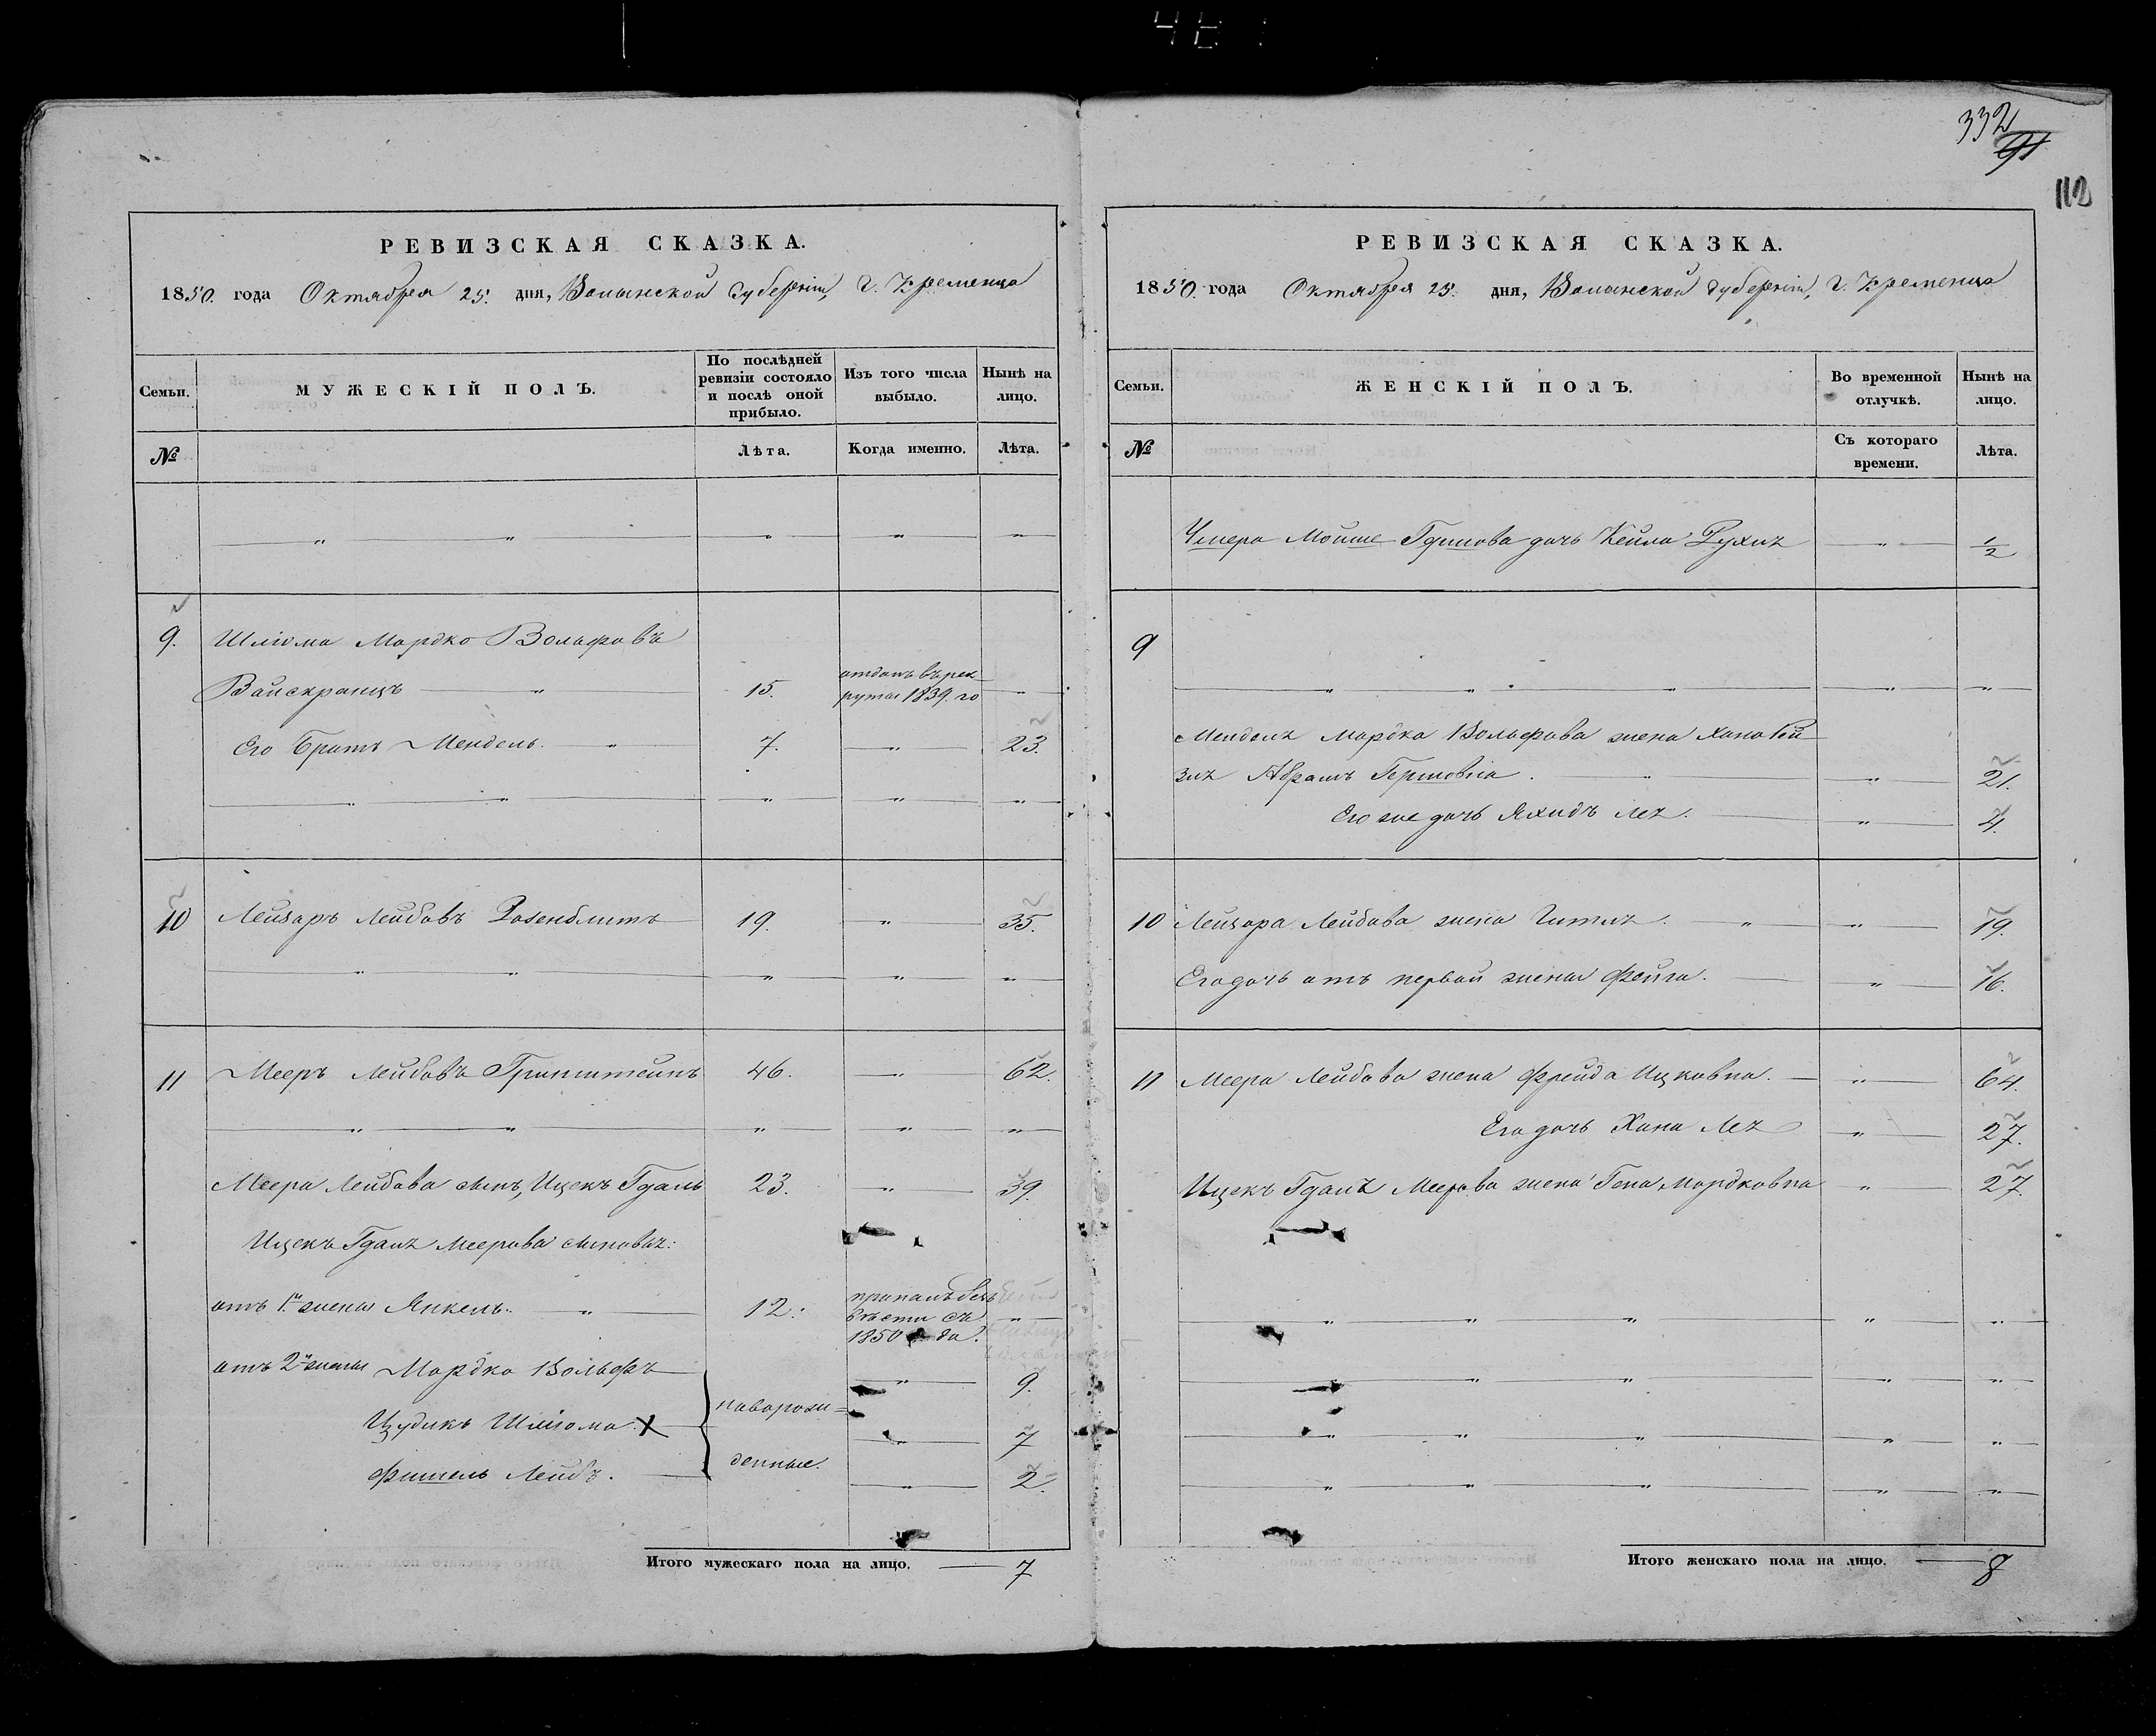 332
91
112
РЕВИЗСКАЯ СКАЗКА.
1850. года Октября 25. дня, Волынской Губерніи, г. Кременца
Семьи.
МУЖЕСКІЙ ПОЛЪ.
По послѣдней ревизіи состояло и послѣ оной прибыло.
Изъ того числа выбыло.
Нынѣ на лицо.
№
Лѣта.
Когда именно.
Лѣта.
9. Шліома Мордко Вольфовъ
Вайскранцъ 15. отданъ въ рекруты 1839. го
Его братъ Мендель. 7. 23.
10 Лейзоръ Лейбовъ Розенблитъ 19. 35.
11 Мееръ Лейбовъ Гринштейнъ 46. 62.
Меера Лейбова сынъ, Ицекъ Гдаль 23. 39.
Ицекъ Гдаля Меерова сыновья:
отъ 1й жены Янкель. 12. пропалъ безъ вѣсти съ 1850 года.
отъ 2й жены Мордко Вольфъ 9.
Цудикъ Шліома х новорожденные. 7
Фишель Лейбъ. 2.
Итого мужескаго пола на лицо. 7
РЕВИЗСКАЯ СКАЗКА.
1850. года Октября 25. дня, Волынской Губерніи, г. Кременца
Семьи.
ЖЕНСКІЙ ПОЛЪ.
Во временной отлучкѣ.
Нынѣ на лицо.
№
Съ котораго времени.
Лѣта.
Мойше дочь Кейла 1/2
9
Мендля Мордка Вольфова жена Хана Рей
зя Абрамъ Гершовна. 21.
Его же дочь Яхидъ Лея. 4.
10 Лейзора Лейбова жена Гитля. 19.
Его дочь отъ первой жены Фейга. 16.
11 Меера Лейбова жена Фрейда Ицковна. 64.
Его дочь Хана Лея 27.
Ицекъ Гдаля Меерова жена Гена Мордковна 27.
Итого женскаго пола на лицо. 8